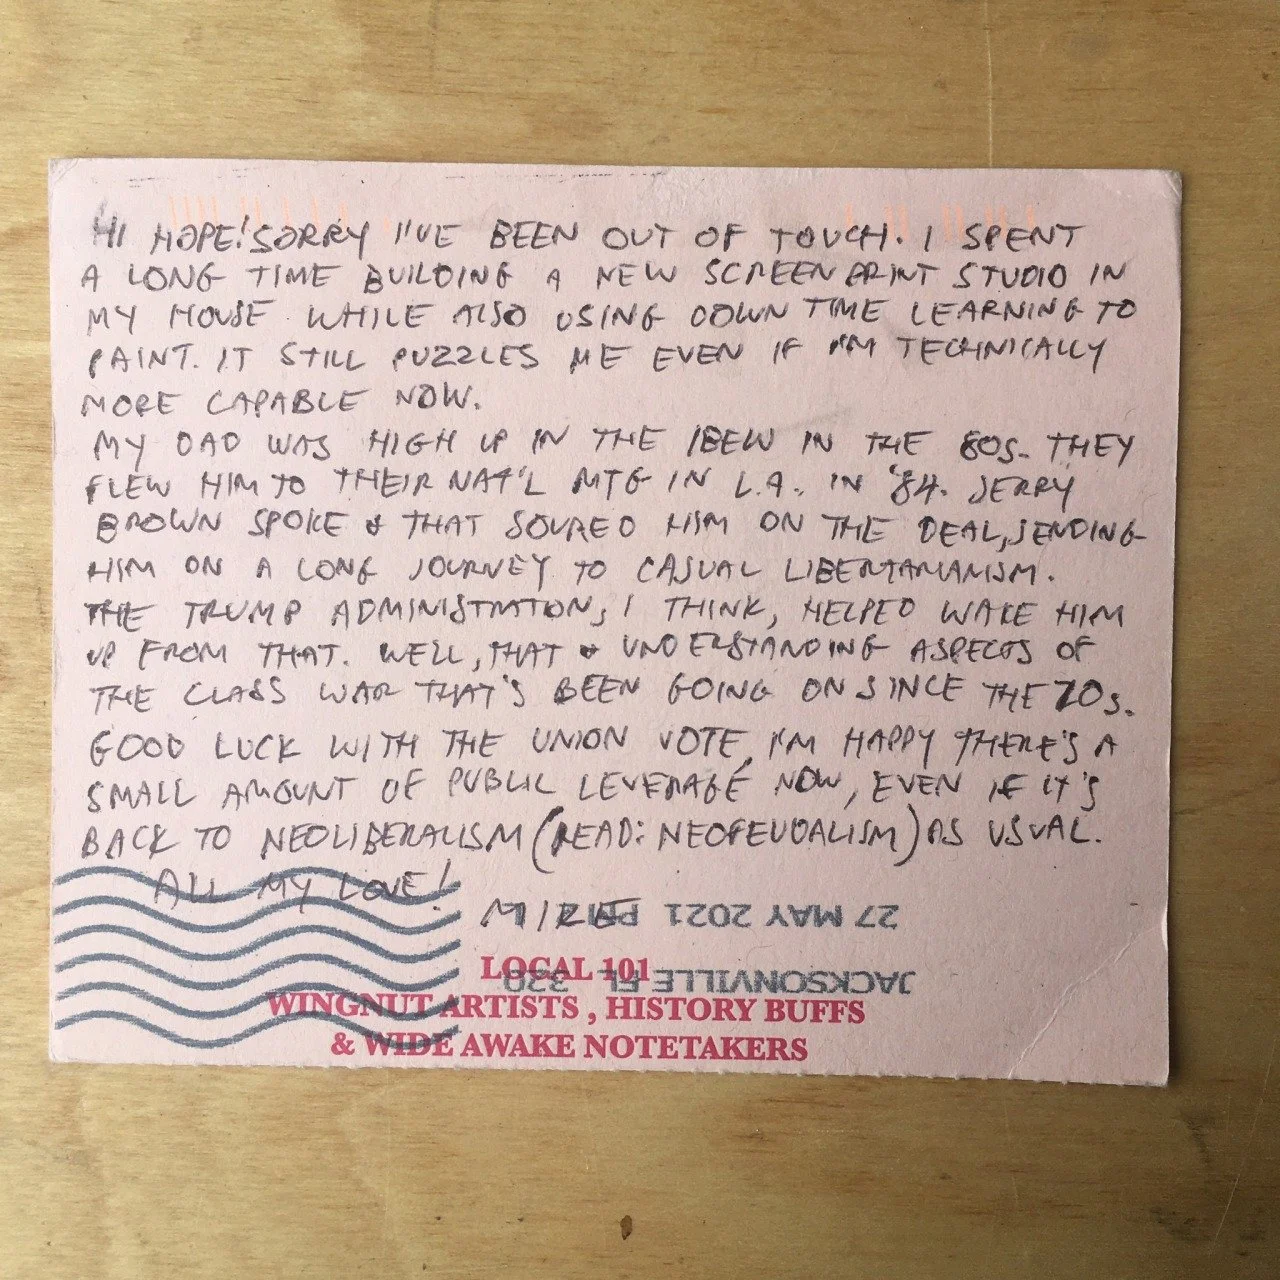 HI HOPE! SORRY I'VE BEEN OUT OF TOUCH. I SPENT
A LONG TIME BUILDING A NEW SCREEN PRINT STUDIO IN
MY HOUSE WHILE ALSO USING DOWN TIME LEARNING TO
PAINT. IT STILL PUZZLES ME EVEN IF I'M TECHNICALLY
MORE CAPABLE NOW.
MY DAD WAS HIGH UP IN THE IBEW IN THE 80S. THEY
FLEW HIM TO THEIR NAT'L MTG IN L.A. IN '84. JERRY
BROWN SPOKE & THAT SOURED HIM ON THE DEAL, SENDING
HIM ON A LONG JOURNEY TO CASUAL LIBERTARIANISM.
THE TRUMP ADMINISTRATION, I THINK, HELPED WAKE HIM
UP FROM THAT. WELL, THAT & UNDERSTANDING ASPECTS OF
THE CLASS WAR THAT'S BEEN GOING ON SINCE THE 70s.
GOOD LUCK WITH THE UNION VOTE, I'M HAPPY THERE'S A
SMALL AMOUNT OF PUBLIC LEVERAGE NOW, EVEN IF IT'S
BACK TO NEOLIBERALISM (READ: NEOFEUDALISM) AS USUAL.
ALL MY LOVE!
MIKE
27 MAY 2021 PM
JACKSONVILLE FL 320
LOCAL 101
WINGNUT ARTISTS , HISTORY BUFFS
& WIDE AWAKE NOTETAKERS